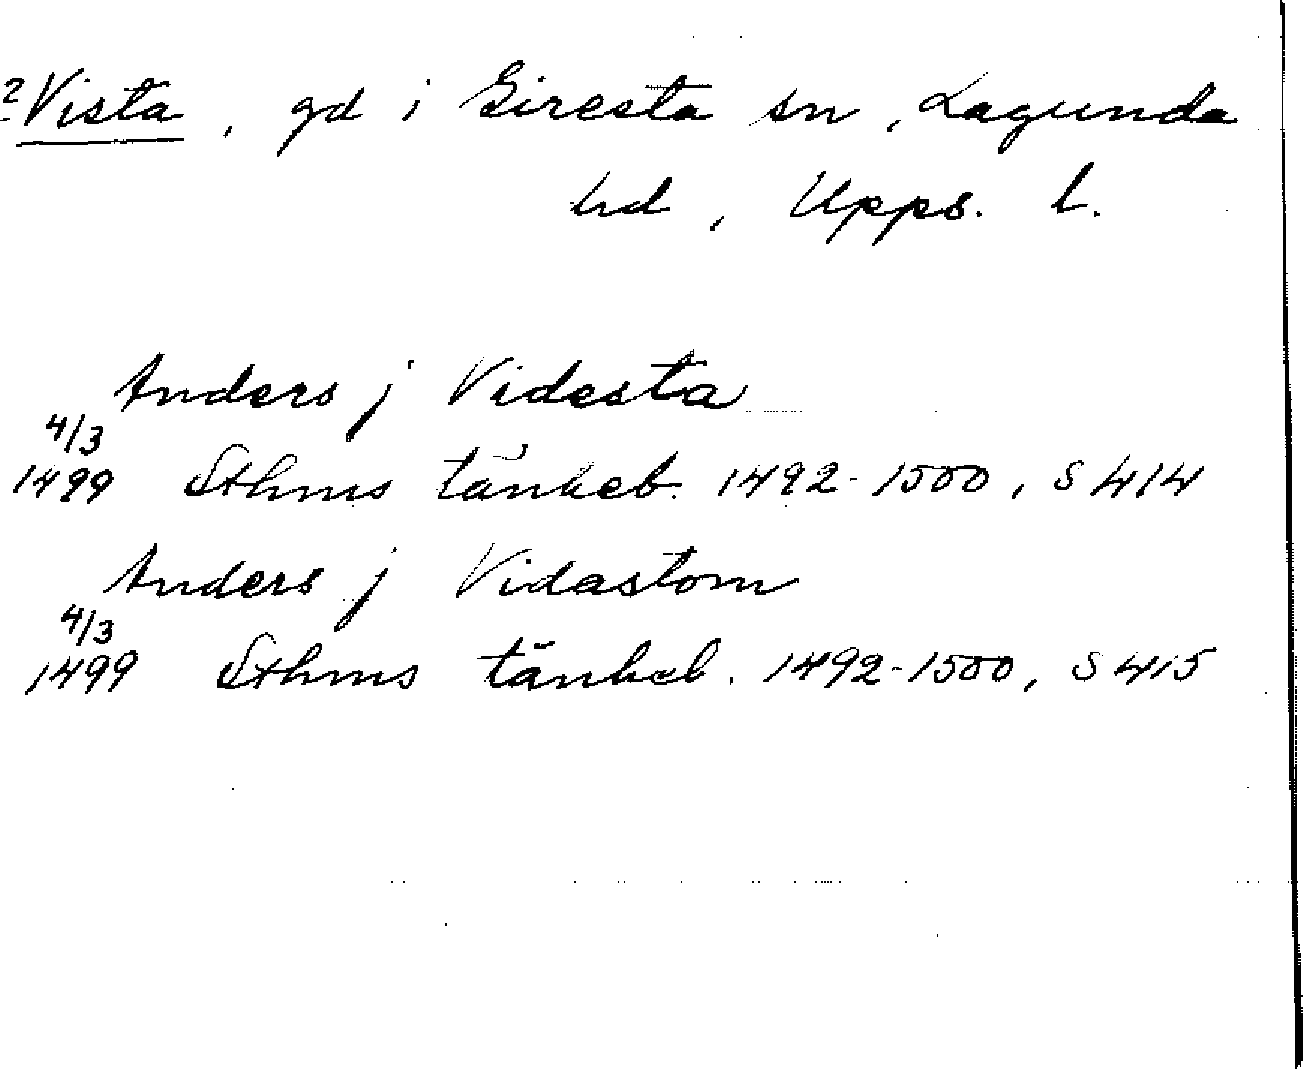 ? Vista, gd i Giresta sn, Lagunda
hd, Upps. l.
Anders j Videsta
4/3
1499 Sthms tänkeb. 1492-1500, s 414
Anders j Vidastom
4/3
1499 Sthms tänkeb. 1492-1500, s 415